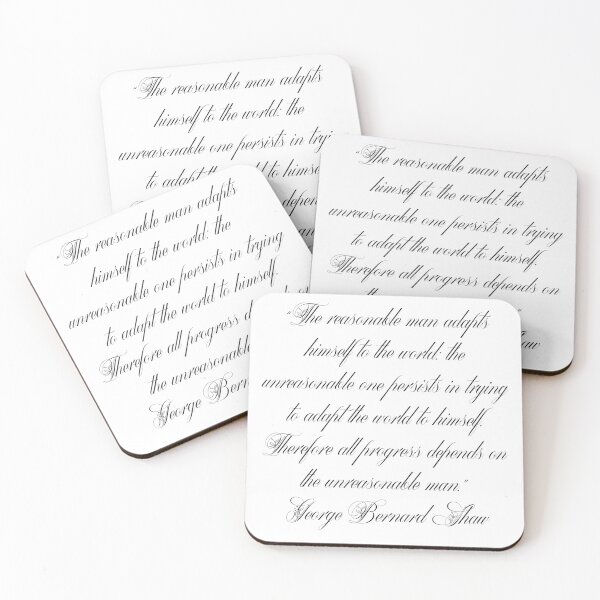 “The reasonable man adapts
himself to the world: the
unreasonable one persists in trying
to adapt the world to
“The reasonable man adapts
himself to the world: the
unreasonable one persists in trying
to adapt the world to himself.
Therefore all progress depends on
Shaw
“The reasonable man adapts
himself to the world: the
unreasonable one persists in trying
to adapt the world to himself.
Therefore all progress
the unreasonable
George
“The reasonable man adapts
himself to the world: the
unreasonable one persists in trying
to adapt the world to himself.
Therefore all progress depends on
the unreasonable man.”
George Bernard Shaw